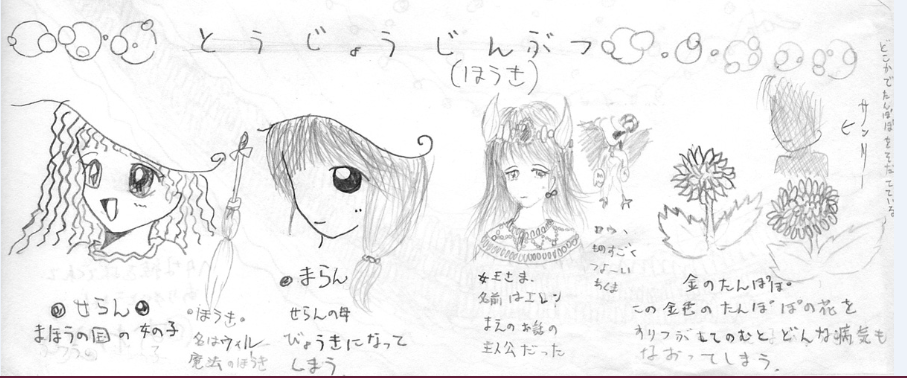 とうじょうじんぶつ
(ほうき)
どこかでたんぽぽをそだてている
サンリー
せらん
まほうの国の女の子
ほうき。
名はウィル
魔法のほうき
まらん
せらんの母
びょうきになって
しまう
女王さま、
名前はエレン
まえのお話の
主人公だった
ものすごく
つよーい
あくま
金のたんぽぽ。
この金色のたんぽぽの花を
すりつぶしてのむと どんな病気も
なおってしまう。